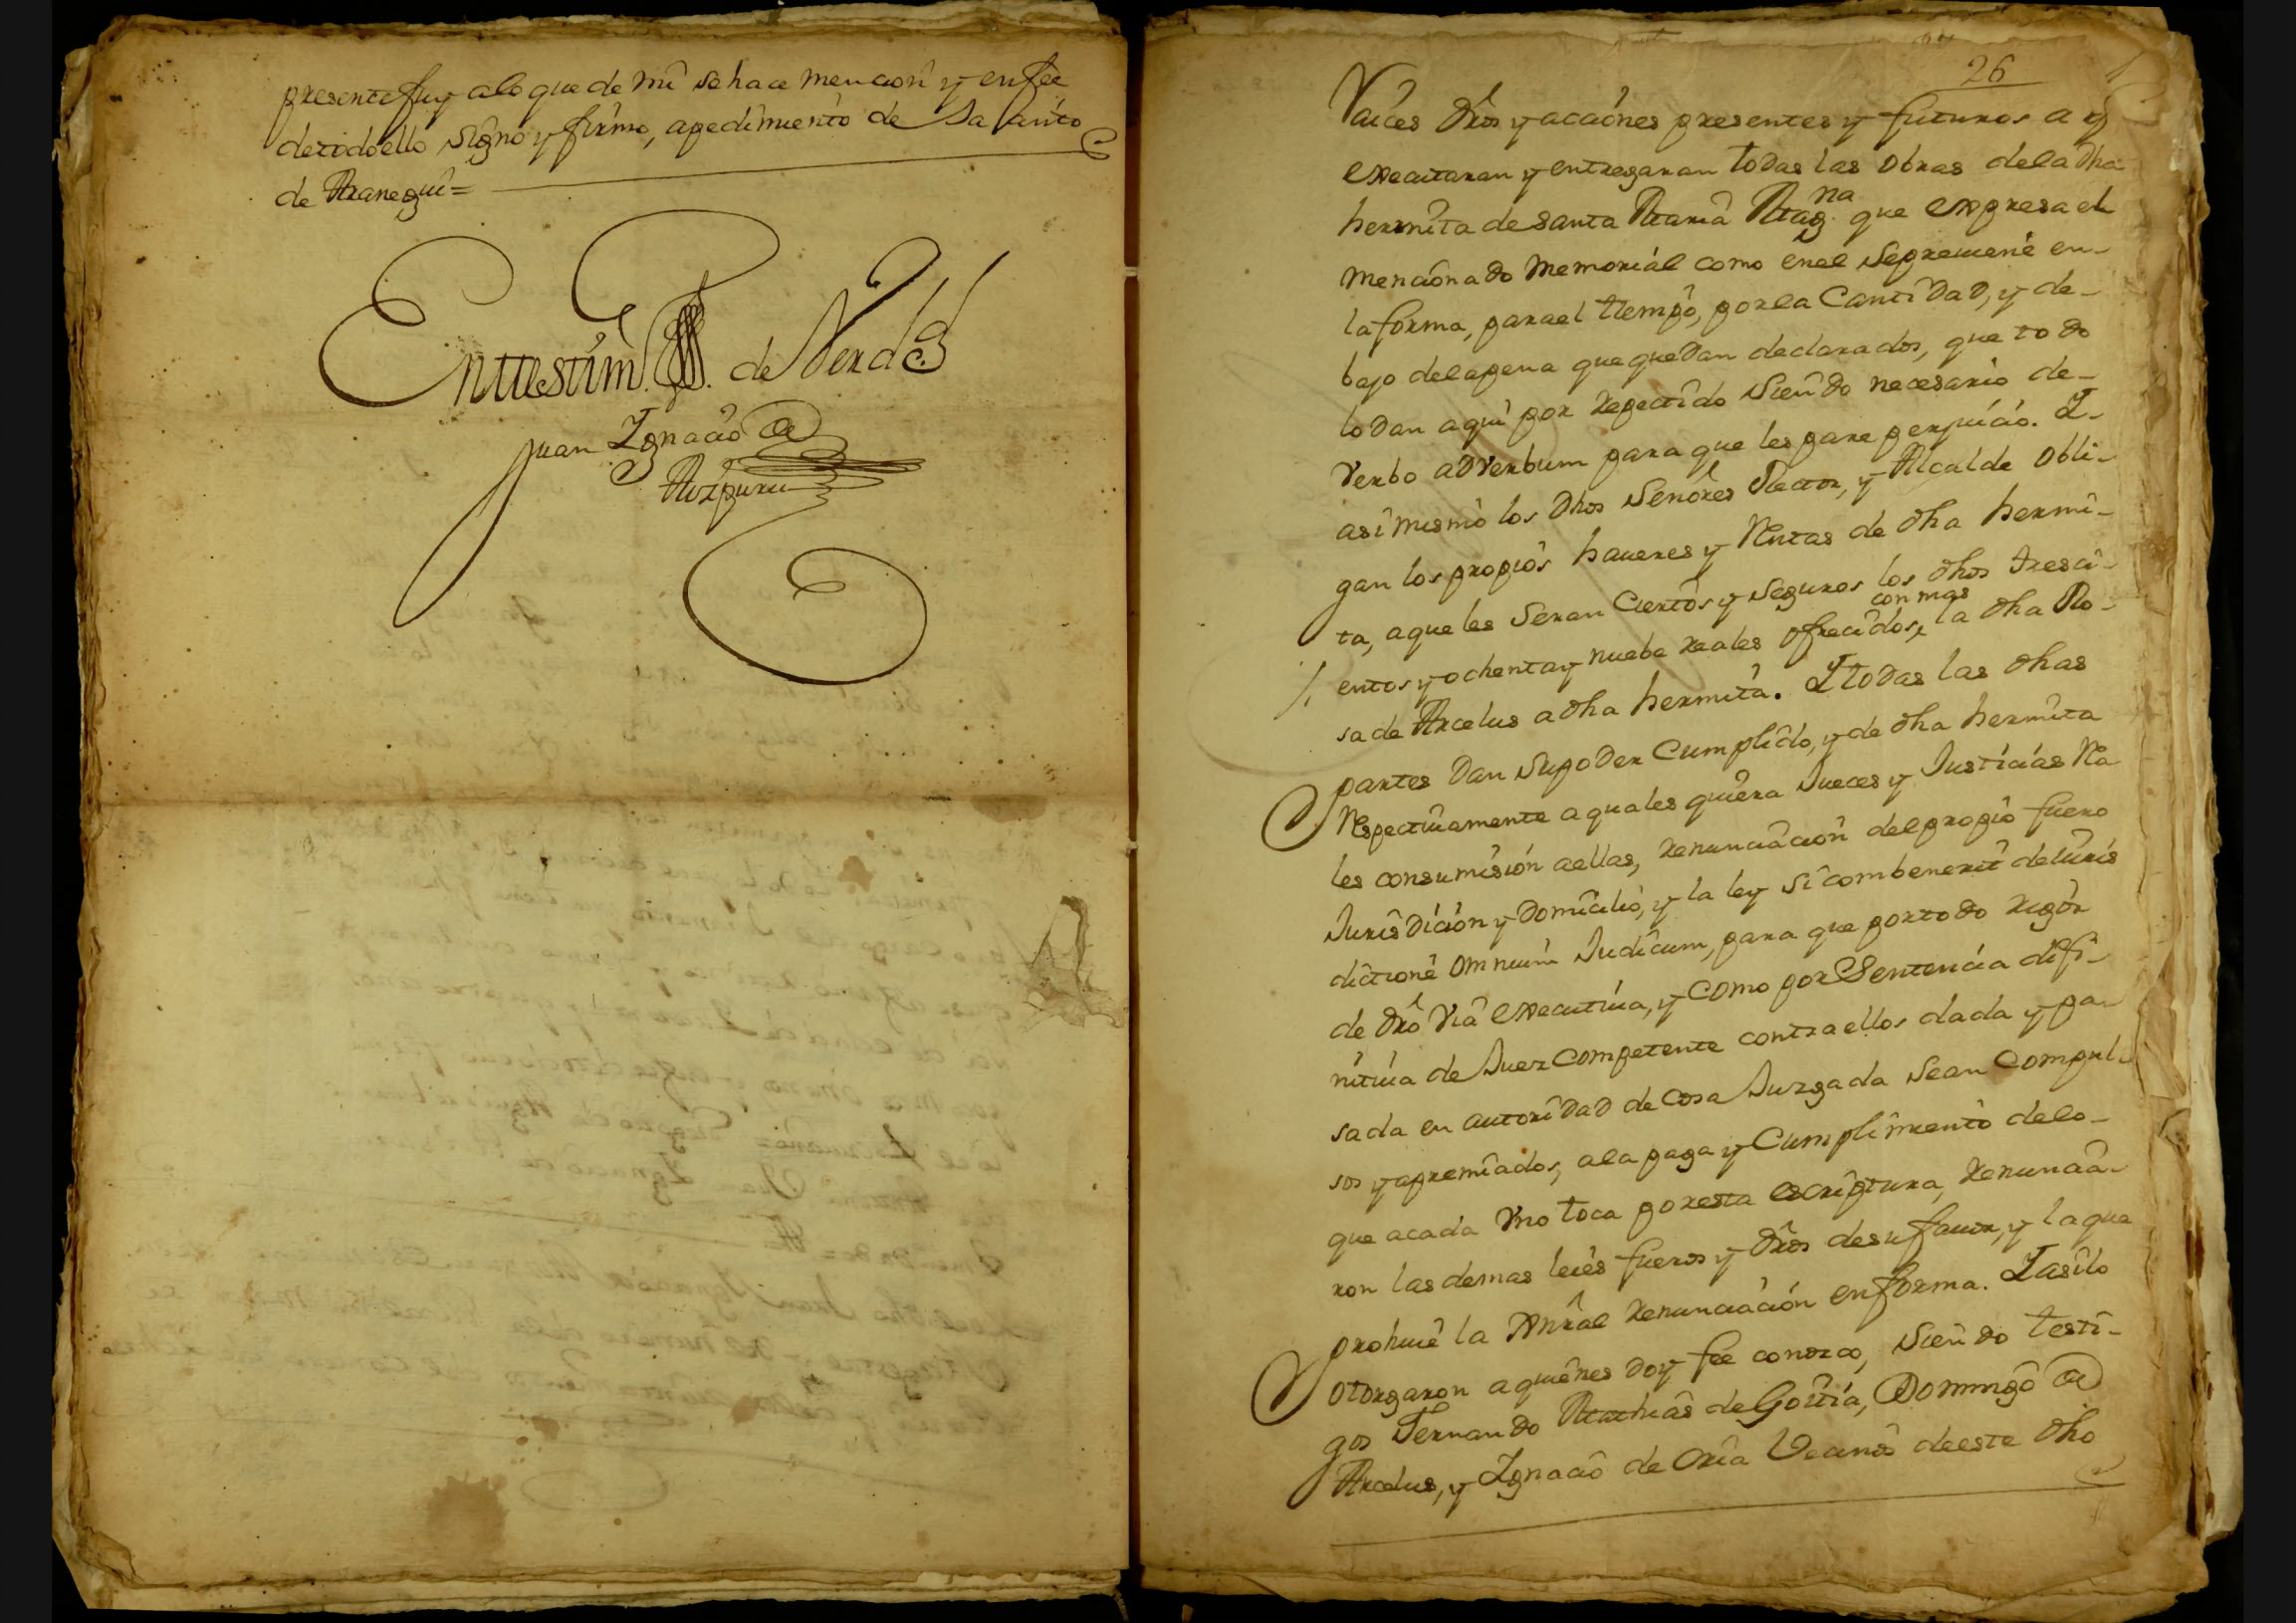 presente fuy alo que de mi se hace mencion y en fee
detodoello signo y firmo, apedimiento de
de Aranegui=
En testim.º de Verdad
Juan Ignacio de
Aizpuru
26
Raices dros y acciones presentes y futuros a q
executaran y entregaran todas las obras dela dha
hermita de santa Maria Mag.na que expresa el
mencionado memorial como enel sepreuiene en-
la forma, parael tiempo, porla Cantidad, y de-
bajo delapena que quedan declarados, que todo
lo dan aqui por repetido siendo necesario de-
Verbo adVerbum para que les pare perjuicio. I-
asi mismo los dhos Señores Rector, y Alcalde obli-
gan los propios haueres y Rentas de dha hermi-
ta, aque les seran Ciertos y seguros los dhos tresci-
con mas
entos y ochentay nuebe reales ofrecidos, la dha Ro-
sa de Arcelus a dha hermita. I todas las dhas
partes dan supoder Cumplido, y de dha hermita
Respectiuamente a quales quiera Jueces y Justicias Rea
les consumision aellas, renunciacion delpropio fuero
Jurisdicion y Domicilio, y la ley si combenerit deiuris
dictione omnium Judicum, para que portodo rigor
de dro Via executiua, y como por Sentencia difi-
nitiua de Juez Competente contra ellos dada y pa-
sada en autoridad de cosa Juzgada sean Compul-
sos y apremiados, ala paga y Cumplimiento delo-
que acada Vno toca poresta escriptura, renuncia-
ron las demas leies fueros y dros desu fauor, y la que
prohiue la Genral renunciacion en forma. I asilo
otorgaron a quienes doy fee conozco, siendo testi-
gos Fernando Mathias de Goitia, Domingo de
Arcelus, y Ignacio de Oria Vecinos deeste dho